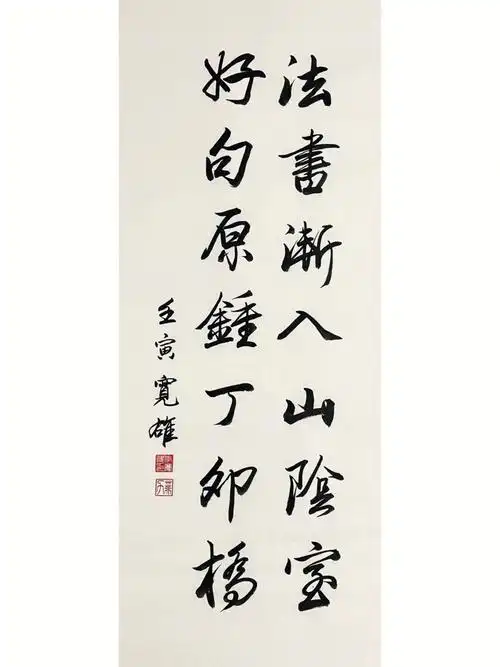 法書漸入山陰室
好句原鍾丁卯橋
壬寅寬雄